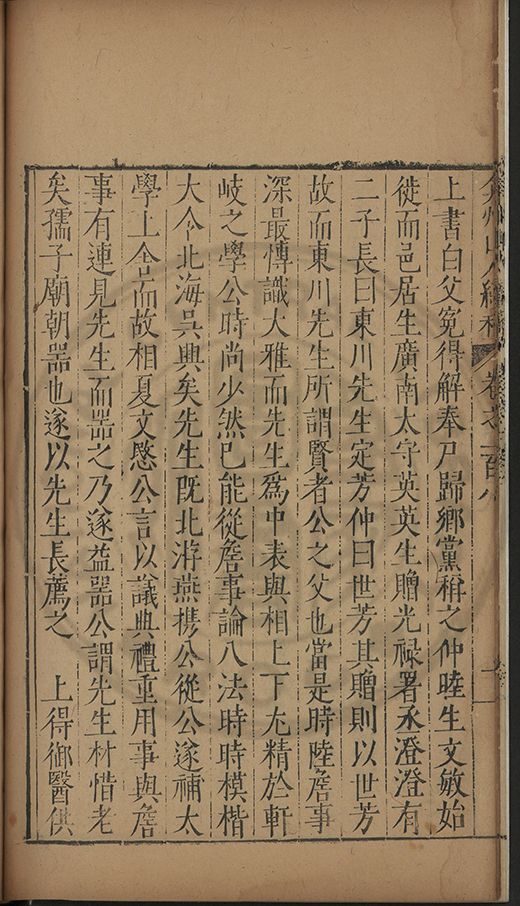 上書白父冤得解奉尸歸鄉黨稱之仲睦生文敏始
徙而邑居生廣南太守英英生贈光祿署丞澄澄有
二子長曰東川先生定芳仲曰世芳其贈則以世芳
故而東川先生所謂賢者公之父也當是時陸詹事
深最博識大雅而先生為中表與相上下尤精於軒
岐之學公時尚少然已能從詹事論八法時時模楷
大令北海吳興矣先生既北游燕携公從公遂補太
學上舍而故相夏文愍公言以議典禮重用事與詹
事有連見先生而器之乃遂益器公謂先生材惜老
矣孺子廟朝器也遂以先生長薦之 上得御醫供
弇州山人續稿 卷之一百八